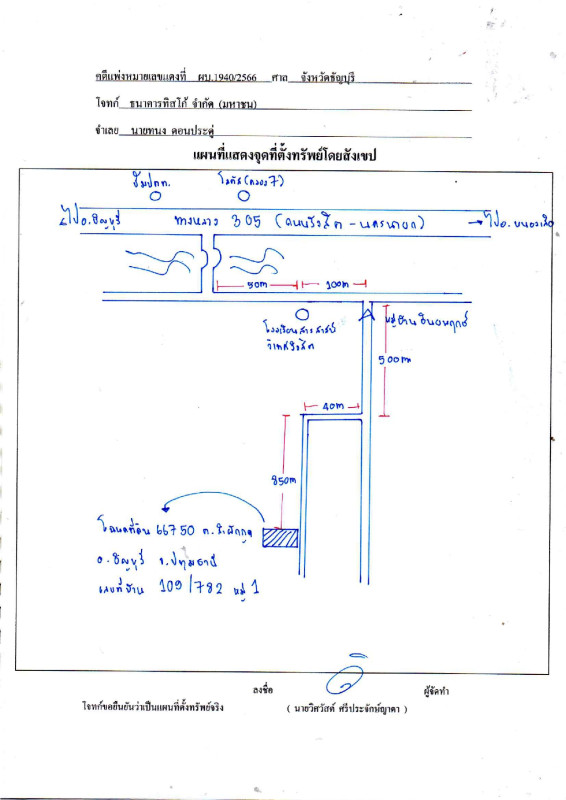 คดีแพ่งหมายเลขแดงที่ ผบ.1940/2566 ศาล จังหวัดธัญบุรี
โจทก์ ธนาคารทิสโก้ จำกัด (มหาชน)
จำเลย นายทนง ดอนประดู่
แผนที่แสดงจุดที่ตั้งทรัพย์โดยสังเขป
ปั๊มปตท. โลตัส (คลอง 7)
ไปอ.ธัญบุรี ทางหลวง 305 (ถนนรังสิต-นครนายก) ไปอ.หนองเสือ
50m 100m
โรงเรียนสารสาสน์
วิเทศรังสิต
หมู่บ้าน สินธพฤกษ์
500m
40m
850m
โฉนดที่ดิน 66750 ต.ลำผักกูด
อ.ธัญบุรี จ.ปทุมธานี
เลขที่บ้าน 109/782 หมู่ 1
ลงชื่อ ผู้จัดทำ
โจทก์ขอยืนยันว่าเป็นแผนที่ตั้งทรัพย์จริง ( นายวิศวัสต์ ศรีประจักษ์ญาดา )